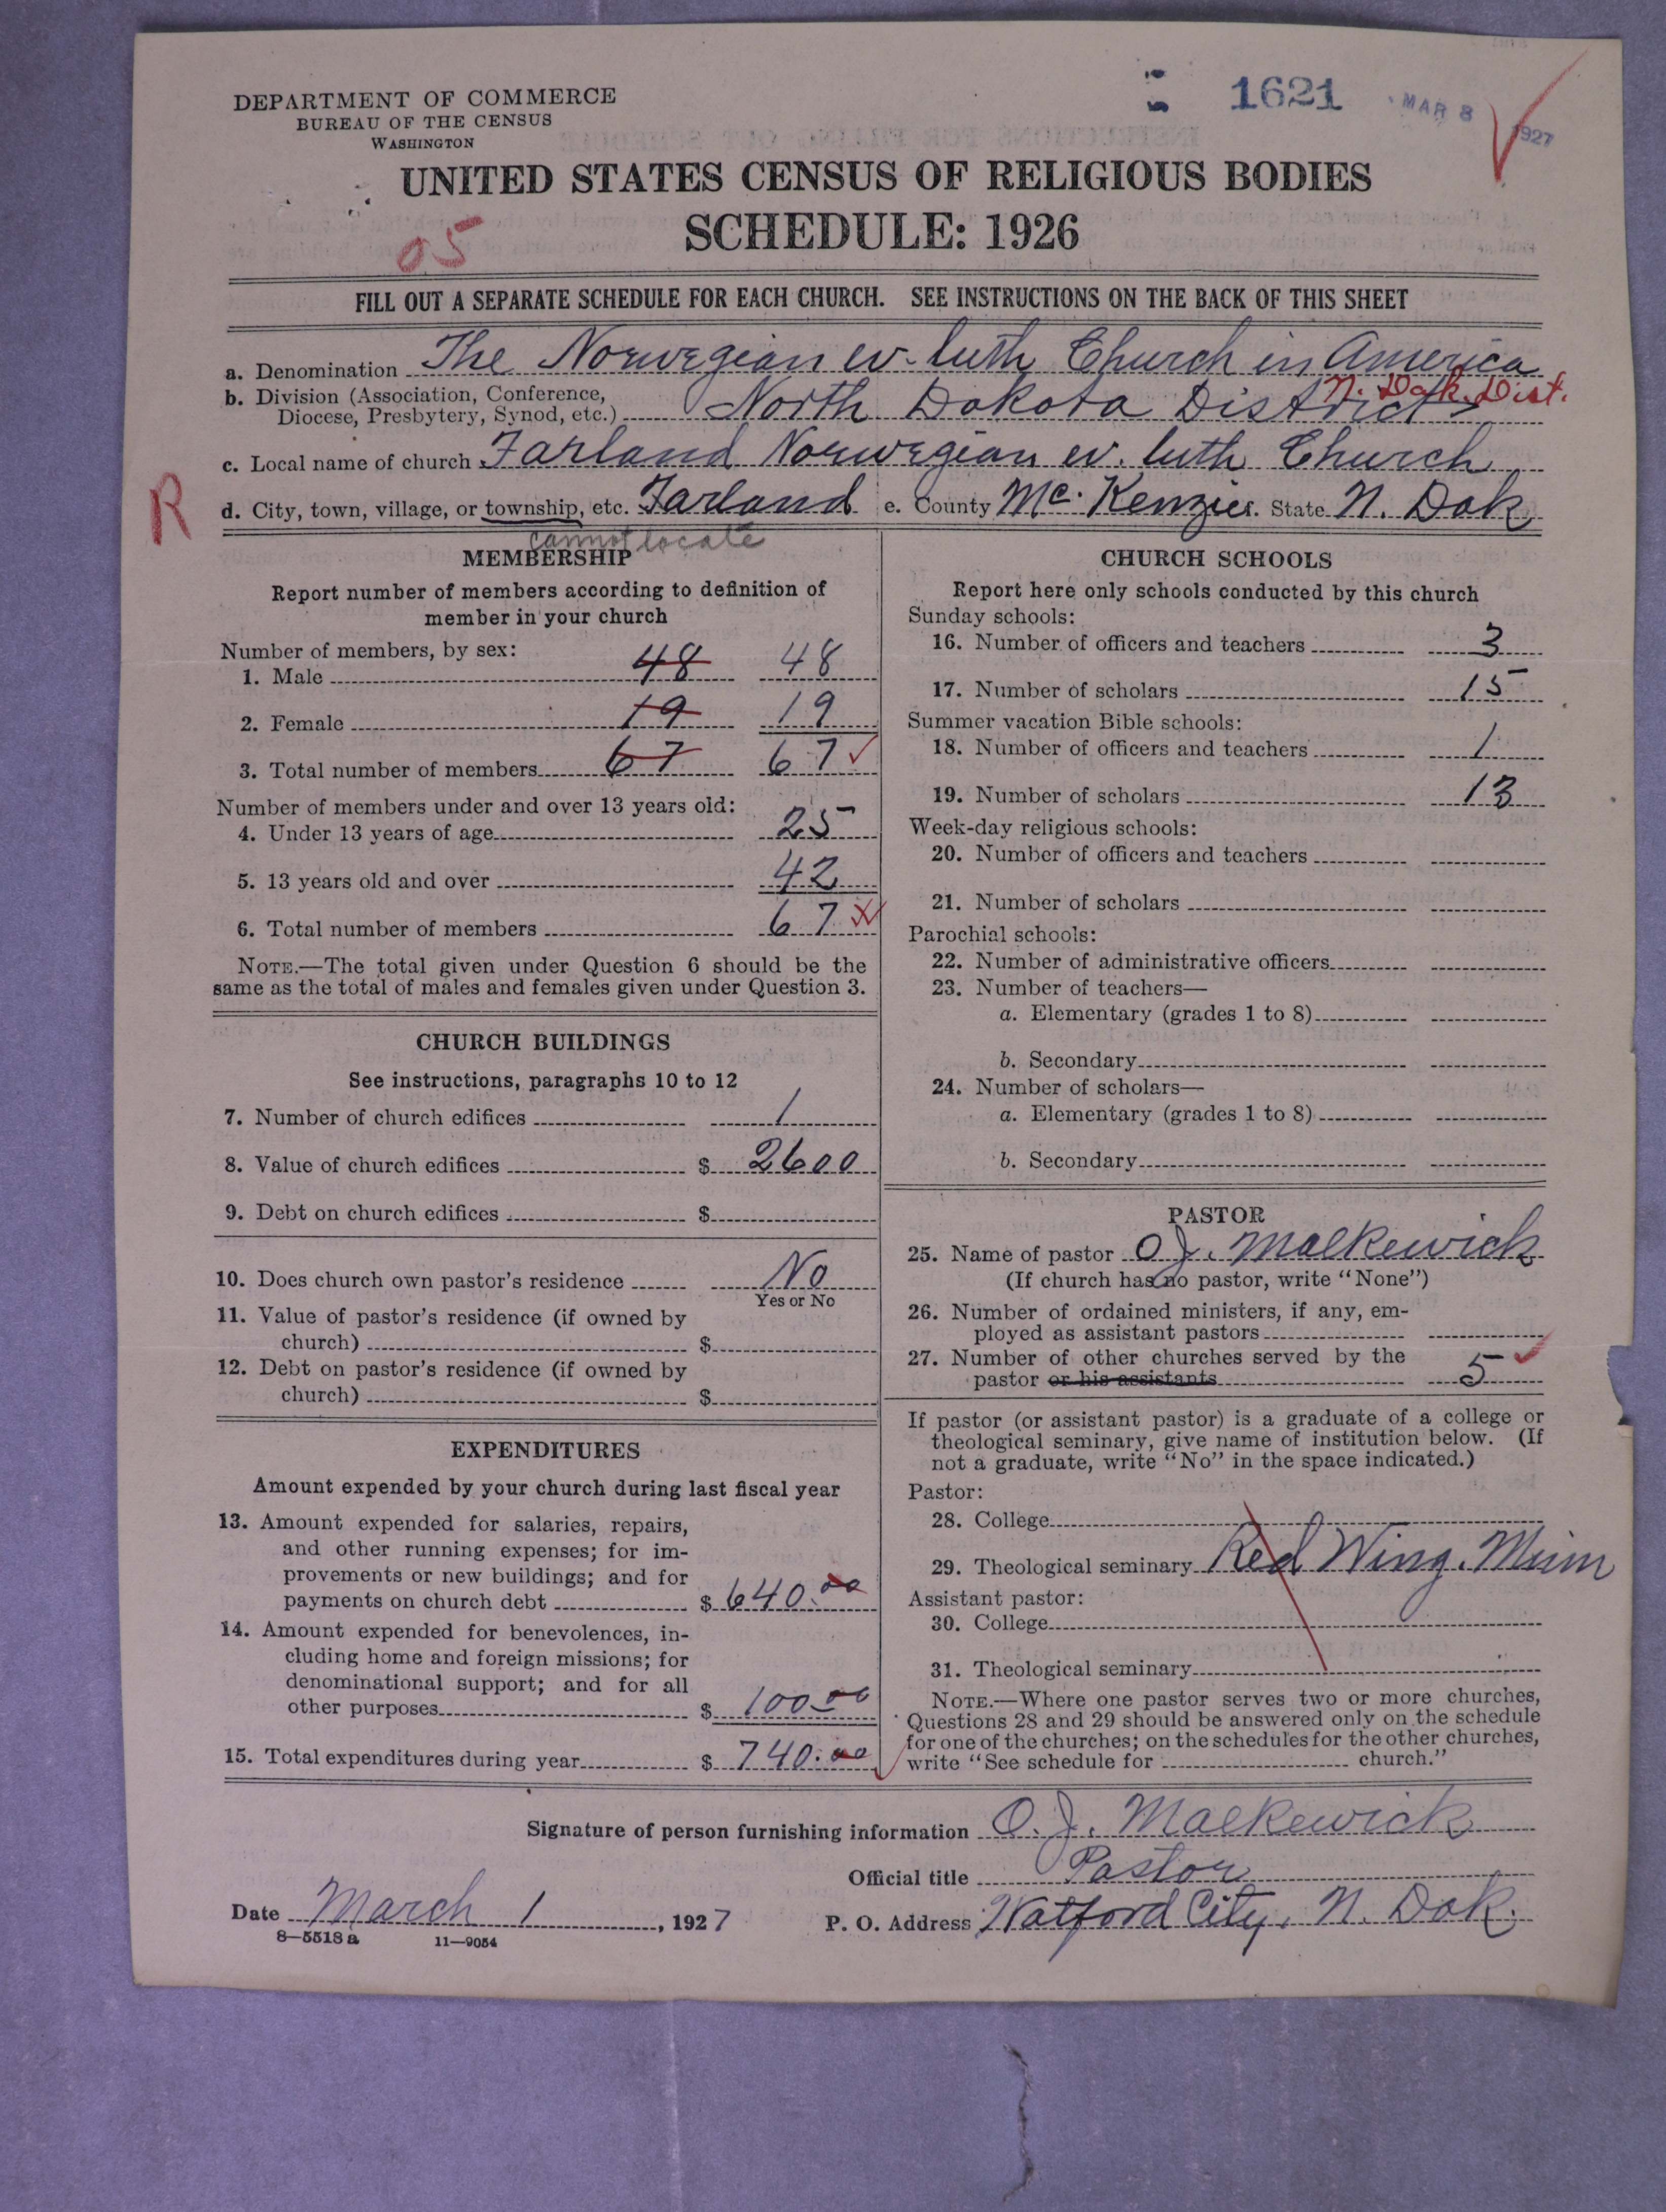 DEPARTMENT OF COMMERCE
BUREAU OF THE CENSUS
WASHINGTON
1621
MAR 8 1927
UNITED STATES CENSUS OF RELIGIOUS BODIES
SCHEDULE: 1926
05
FILL OUT A SEPARATE SCHEDULE FOR EACH CHURCH. SEE INSTRUCTIONS ON THE BACK OF THIS SHEET
a. Denomination The Norwegian ev. luth Church in America
b. Division (Association, Conference,
Diocese, Presbytery, Synod, etc.) North Dakota District N. Dak. Dist.
c. Local name of church Farland Norwegian ev. luth Church
R
d. City, town, village, or township, etc. Farland e. County Mc. Kenzie State N. Dak
cannot locate
MEMBERSHIP
Report number of members according to definition of
member in your church
Number of members, by sex:
1. Male 48 48
2. Female 19 19
3. Total number of members 67 67
Number of members under and over 13 years old:
4. Under 13 years of age 25
5. 13 years old and over 42
6. Total number of members 67
NOTE.—The total given under Question 6 should be the
same as the total of males and females given under Question 3.
CHURCH BUILDINGS
See instructions, paragraphs 10 to 12
7. Number of church edifices 1
8. Value of church edifices $ 2600
9. Debt on church edifices $
10. Does church own pastor's residence No
Yes or No
11. Value of pastor's residence (if owned by
church) $
12. Debt on pastor's residence (if owned by
church) $
EXPENDITURES
Amount expended by your church during last fiscal year
13. Amount expended for salaries, repairs,
and other running expenses; for im-
provements or new buildings; and for
payments on church debt $ 640.00
14. Amount expended for benevolences, in-
cluding home and foreign missions; for
denominational support; and for all
other purposes $ 100.00
15. Total expenditures during year $ 740.00
CHURCH SCHOOLS
Report here only schools conducted by this church
Sunday schools:
16. Number of officers and teachers 3
17. Number of scholars 15
Summer vacation Bible schools:
18. Number of officers and teachers 1
19. Number of scholars 13
Week-day religious schools:
20. Number of officers and teachers
21. Number of scholars
Parochial schools:
22. Number of administrative officers
23. Number of teachers—
a. Elementary (grades 1 to 8)
b. Secondary
24. Number of scholars—
a. Elementary (grades 1 to 8)
b. Secondary
PASTOR
25. Name of pastor O. J. Malkewick
(If church has no pastor, write "None")
26. Number of ordained ministers, if any, em-
ployed as assistant pastors
27. Number of other churches served by the
pastor or his assistants 5
If pastor (or assistant pastor) is a graduate of a college or
theological seminary, give name of institution below. (If
not a graduate, write "No" in the space indicated.)
Pastor:
28. College
29. Theological seminary Red Wing. Minn
Assistant pastor:
30. College
31. Theological seminary
NOTE.—Where one pastor serves two or more churches,
Questions 28 and 29 should be answered only on the schedule
for one of the churches; on the schedules for the other churches,
write "See schedule for church."
Signature of person furnishing information O. J. Malkewick
Official title Pastor
Date March 1, 1927 P. O. Address Watford City, N. Dak.
8—5518 a 11—9054